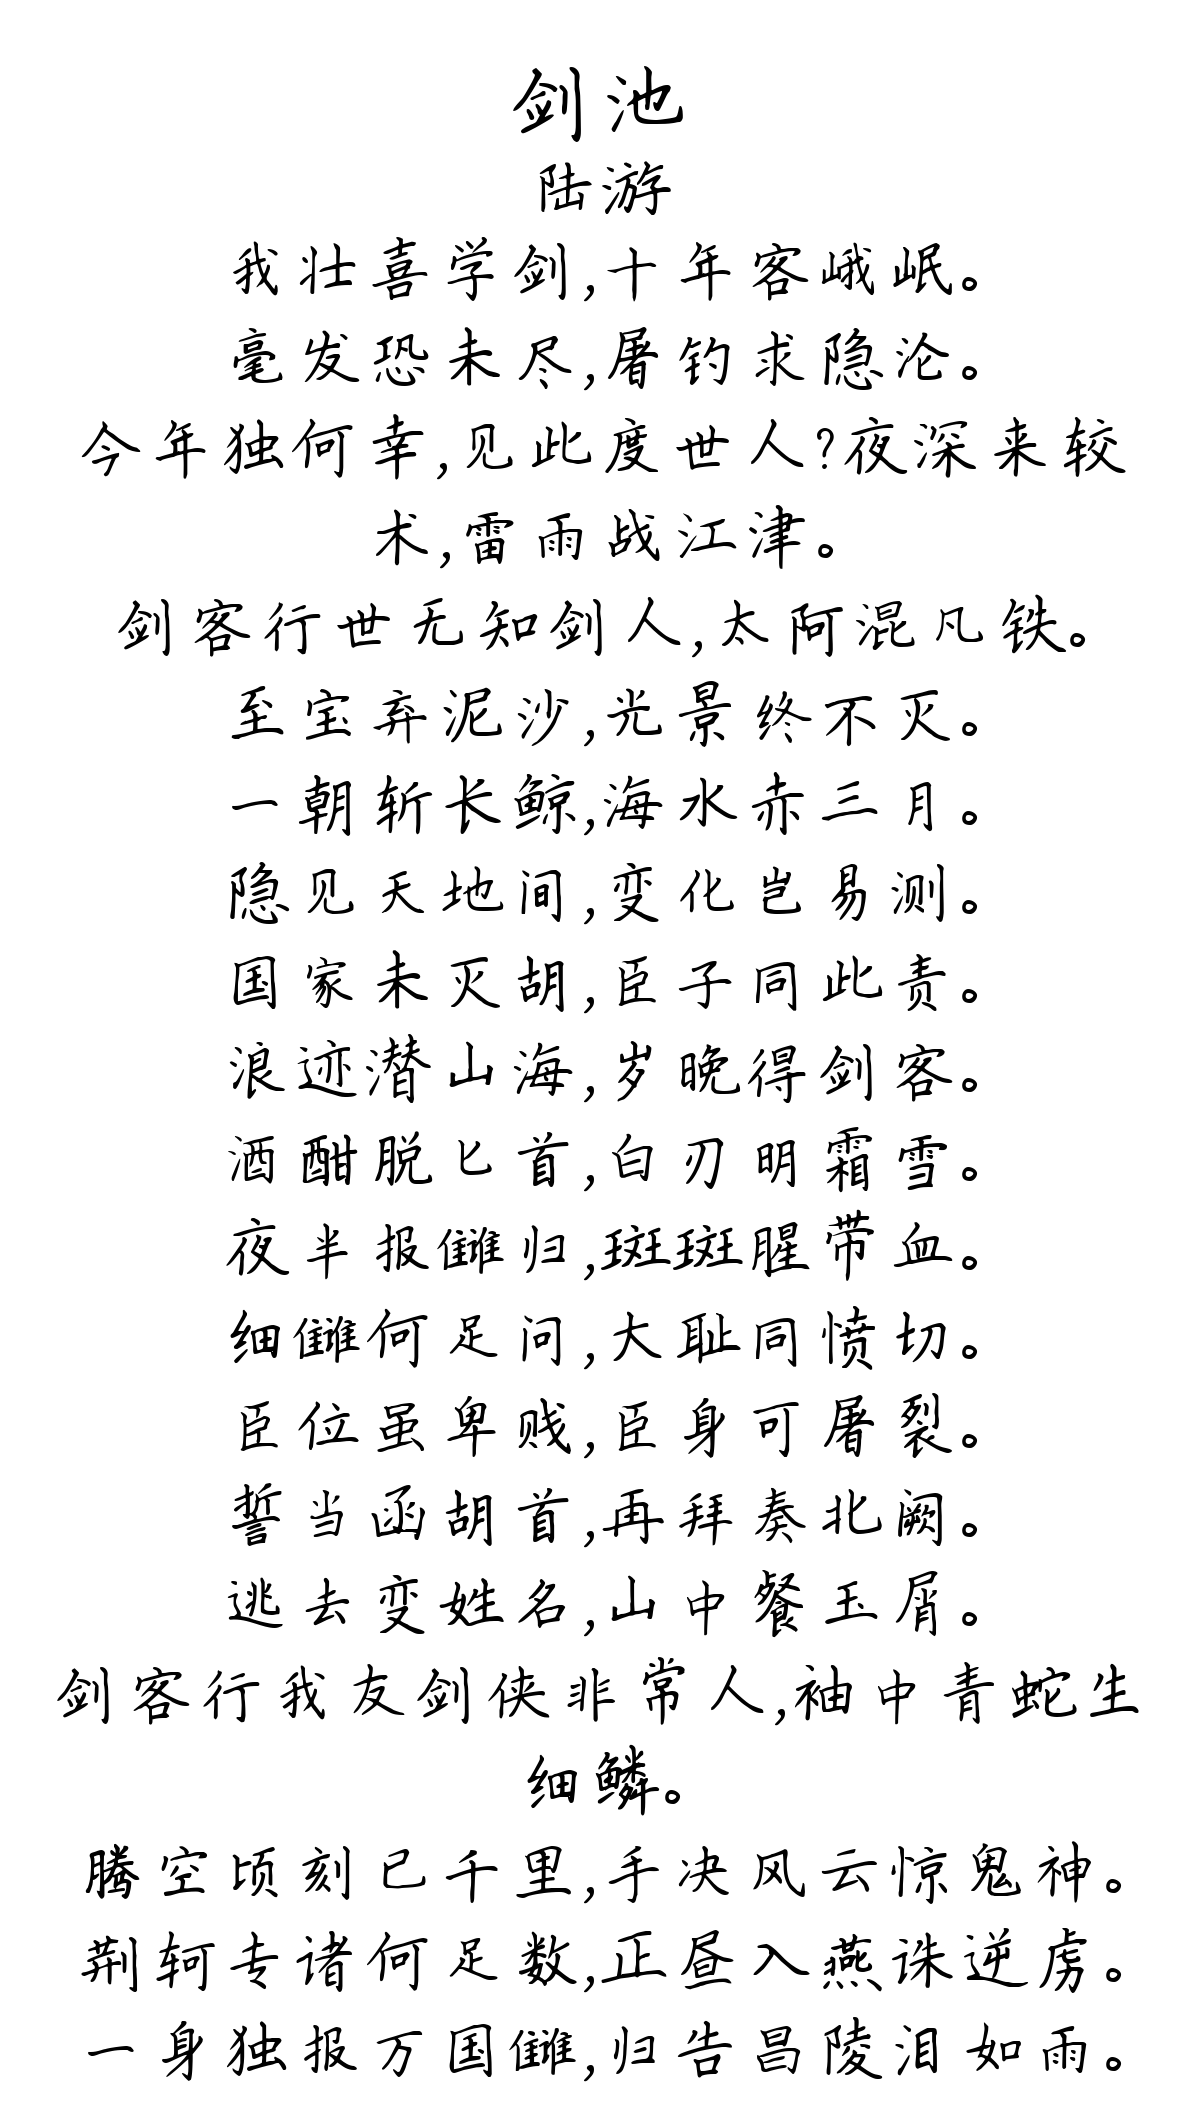 剑池
陆游
我壮喜学剑,十年客峨岷。
毫发恐未尽,屠钓求隐沦。
今年独何幸,见此度世人?夜深来较
术,雷雨战江津。
剑客行世无知剑人,太阿混凡铁。
至宝弃泥沙,光景终不灭。
一朝斩长鲸,海水赤三月。
隐见天地间,变化岂易测。
国家未灭胡,臣子同此责。
浪迹潜山海,岁晚得剑客。
酒酣脱匕首,白刃明霜雪。
夜半报雠归,斑斑腥带血。
细雠何足问,大耻同愤切。
臣位虽卑贱,臣身可屠裂。
誓当函胡首,再拜奏北阙。
逃去变姓名,山中餐玉屑。
剑客行我友剑侠非常人,袖中青蛇生
细鳞。
腾空顷刻已千里,手决风云惊鬼神。
荆轲专诸何足数,正昼入燕诛逆虏。
一身独报万国雠,归告昌陵泪如雨。